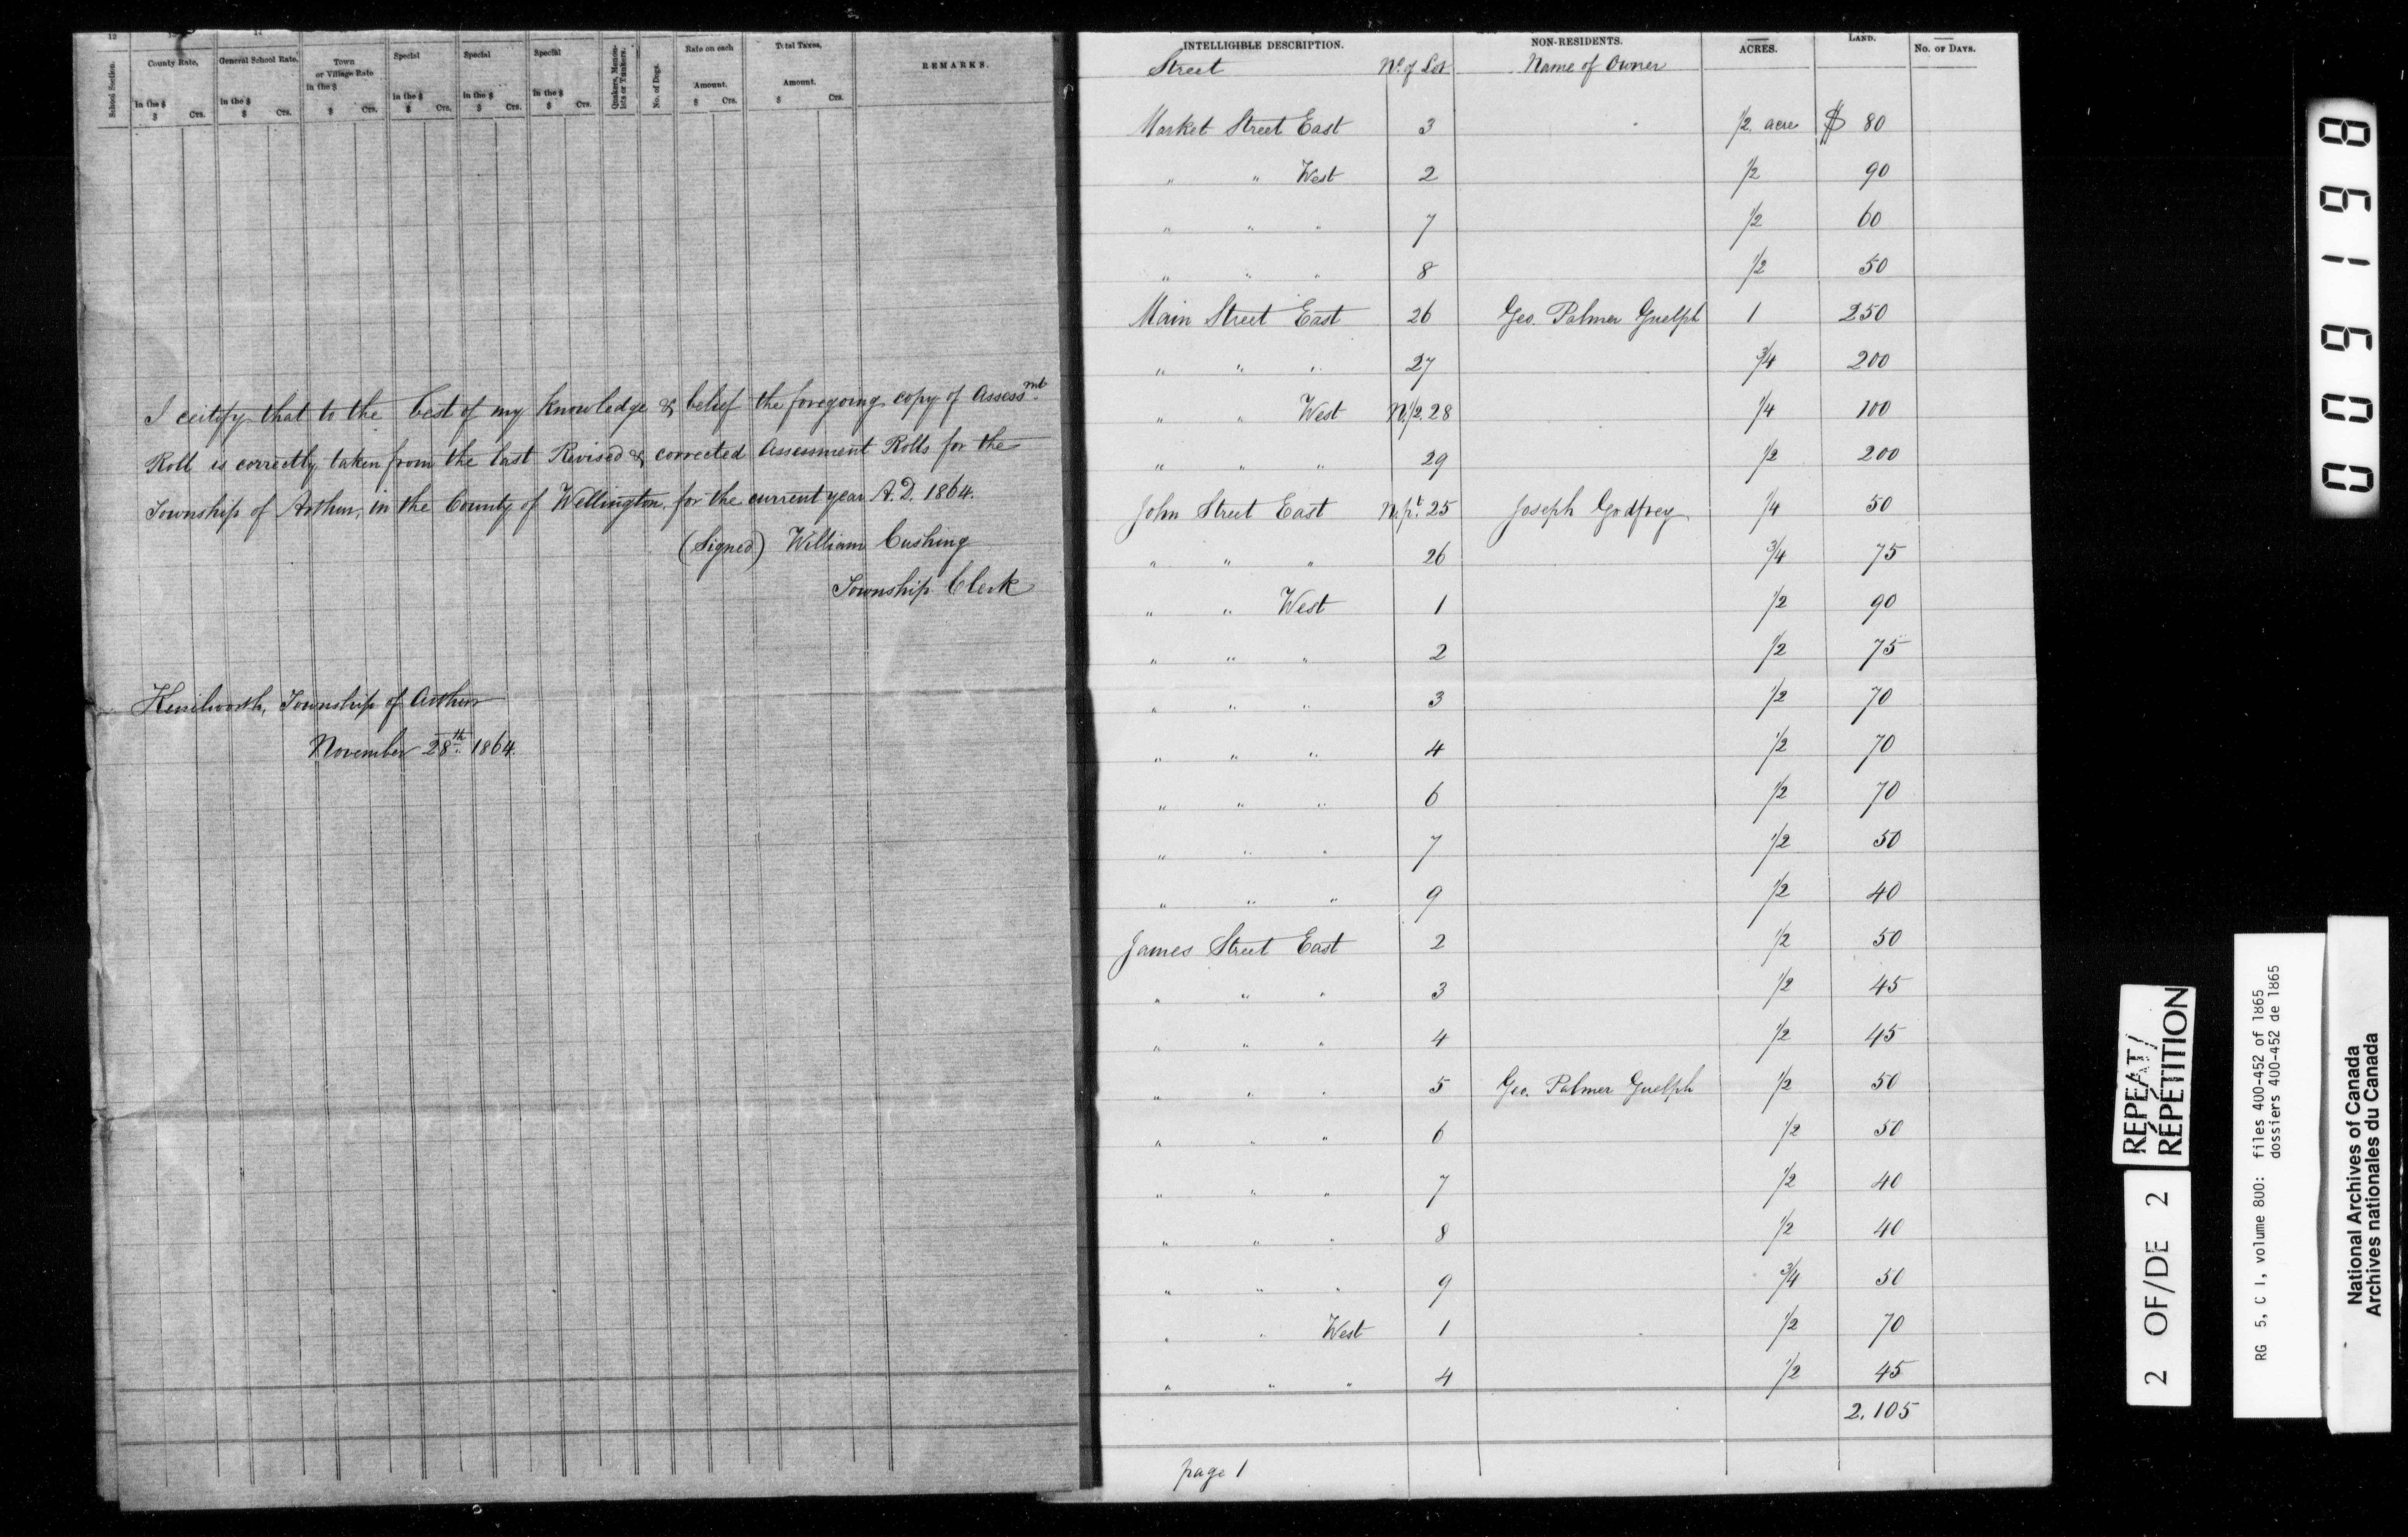 12
School Section.
County Rate,
In the $
$ Cts.
General School Rate,
In the $
$ Cts.
Town
or Village Rate
In the $
$ Cts.
Special
In the $
$ Cts.
Special
In the $
$ Cts.
Special
In the $
$ Cts.
Quakers, Menon-
ists or Tunkers.
No. of Dogs.
Rate on each
Amount.
$ Cts.
Total Taxes,
Amount.
$ Cts.
REMARKS.
I certify that to the best of my knowledge & belief the foregoing copy of Assessmt
Roll is correctly taken from the last Revised & corrected Assessment Rolls for the
Township of Arthur, in the County of Wellington, for the current year A.D. 1864.
(Signed) William Cushing
Township Clerk
Kenilworth, Township of Arthur
November 28th 1864.
INTELLIGIBLE DESCRIPTION. NON-RESIDENTS. ACRES. LAND. No. of Days.
Street No. of Lot Name of Owner
Market Street East 3 1/2 acre $ 80
" " West 2 1/2 90
" " " 7 1/2 60
" " " 8 1/2 50
Main Street East 26 Geo. Palmer Guelph 1 250
" " " 27 3/4 200
" " West N.1/2.28 1/4 100
" " " 29 1/2 200
John Street East N.pt. 25 Joseph Godfrey 1/4 50
" " " 26 3/4 75
" " West 1 1/2 90
" " " 2 1/2 75
" " " 3 1/2 70
" " " 4 1/2 70
" " " 6 1/2 70
" " " 7 1/2 50
" " " 9 1/2 40
James Street East 2 1/2 50
" " " 3 1/2 45
" " " 4 1/2 45
" " " 5 Geo. Palmer Guelph 1/2 50
" " " 6 1/2 50
" " " 7 1/2 40
" " " 8 1/2 40
" " " 9 3/4 50
" " West 1 1/2 70
" " " 4 1/2 45
2.105
page 1
009198
REPEAT/
RÉPÉTITION
2 OF/DE 2
RG 5, C 1, volume 800: files 400-452 of 1865
dossiers 400-452 de 1865
National Archives of Canada
Archives nationales du Canada